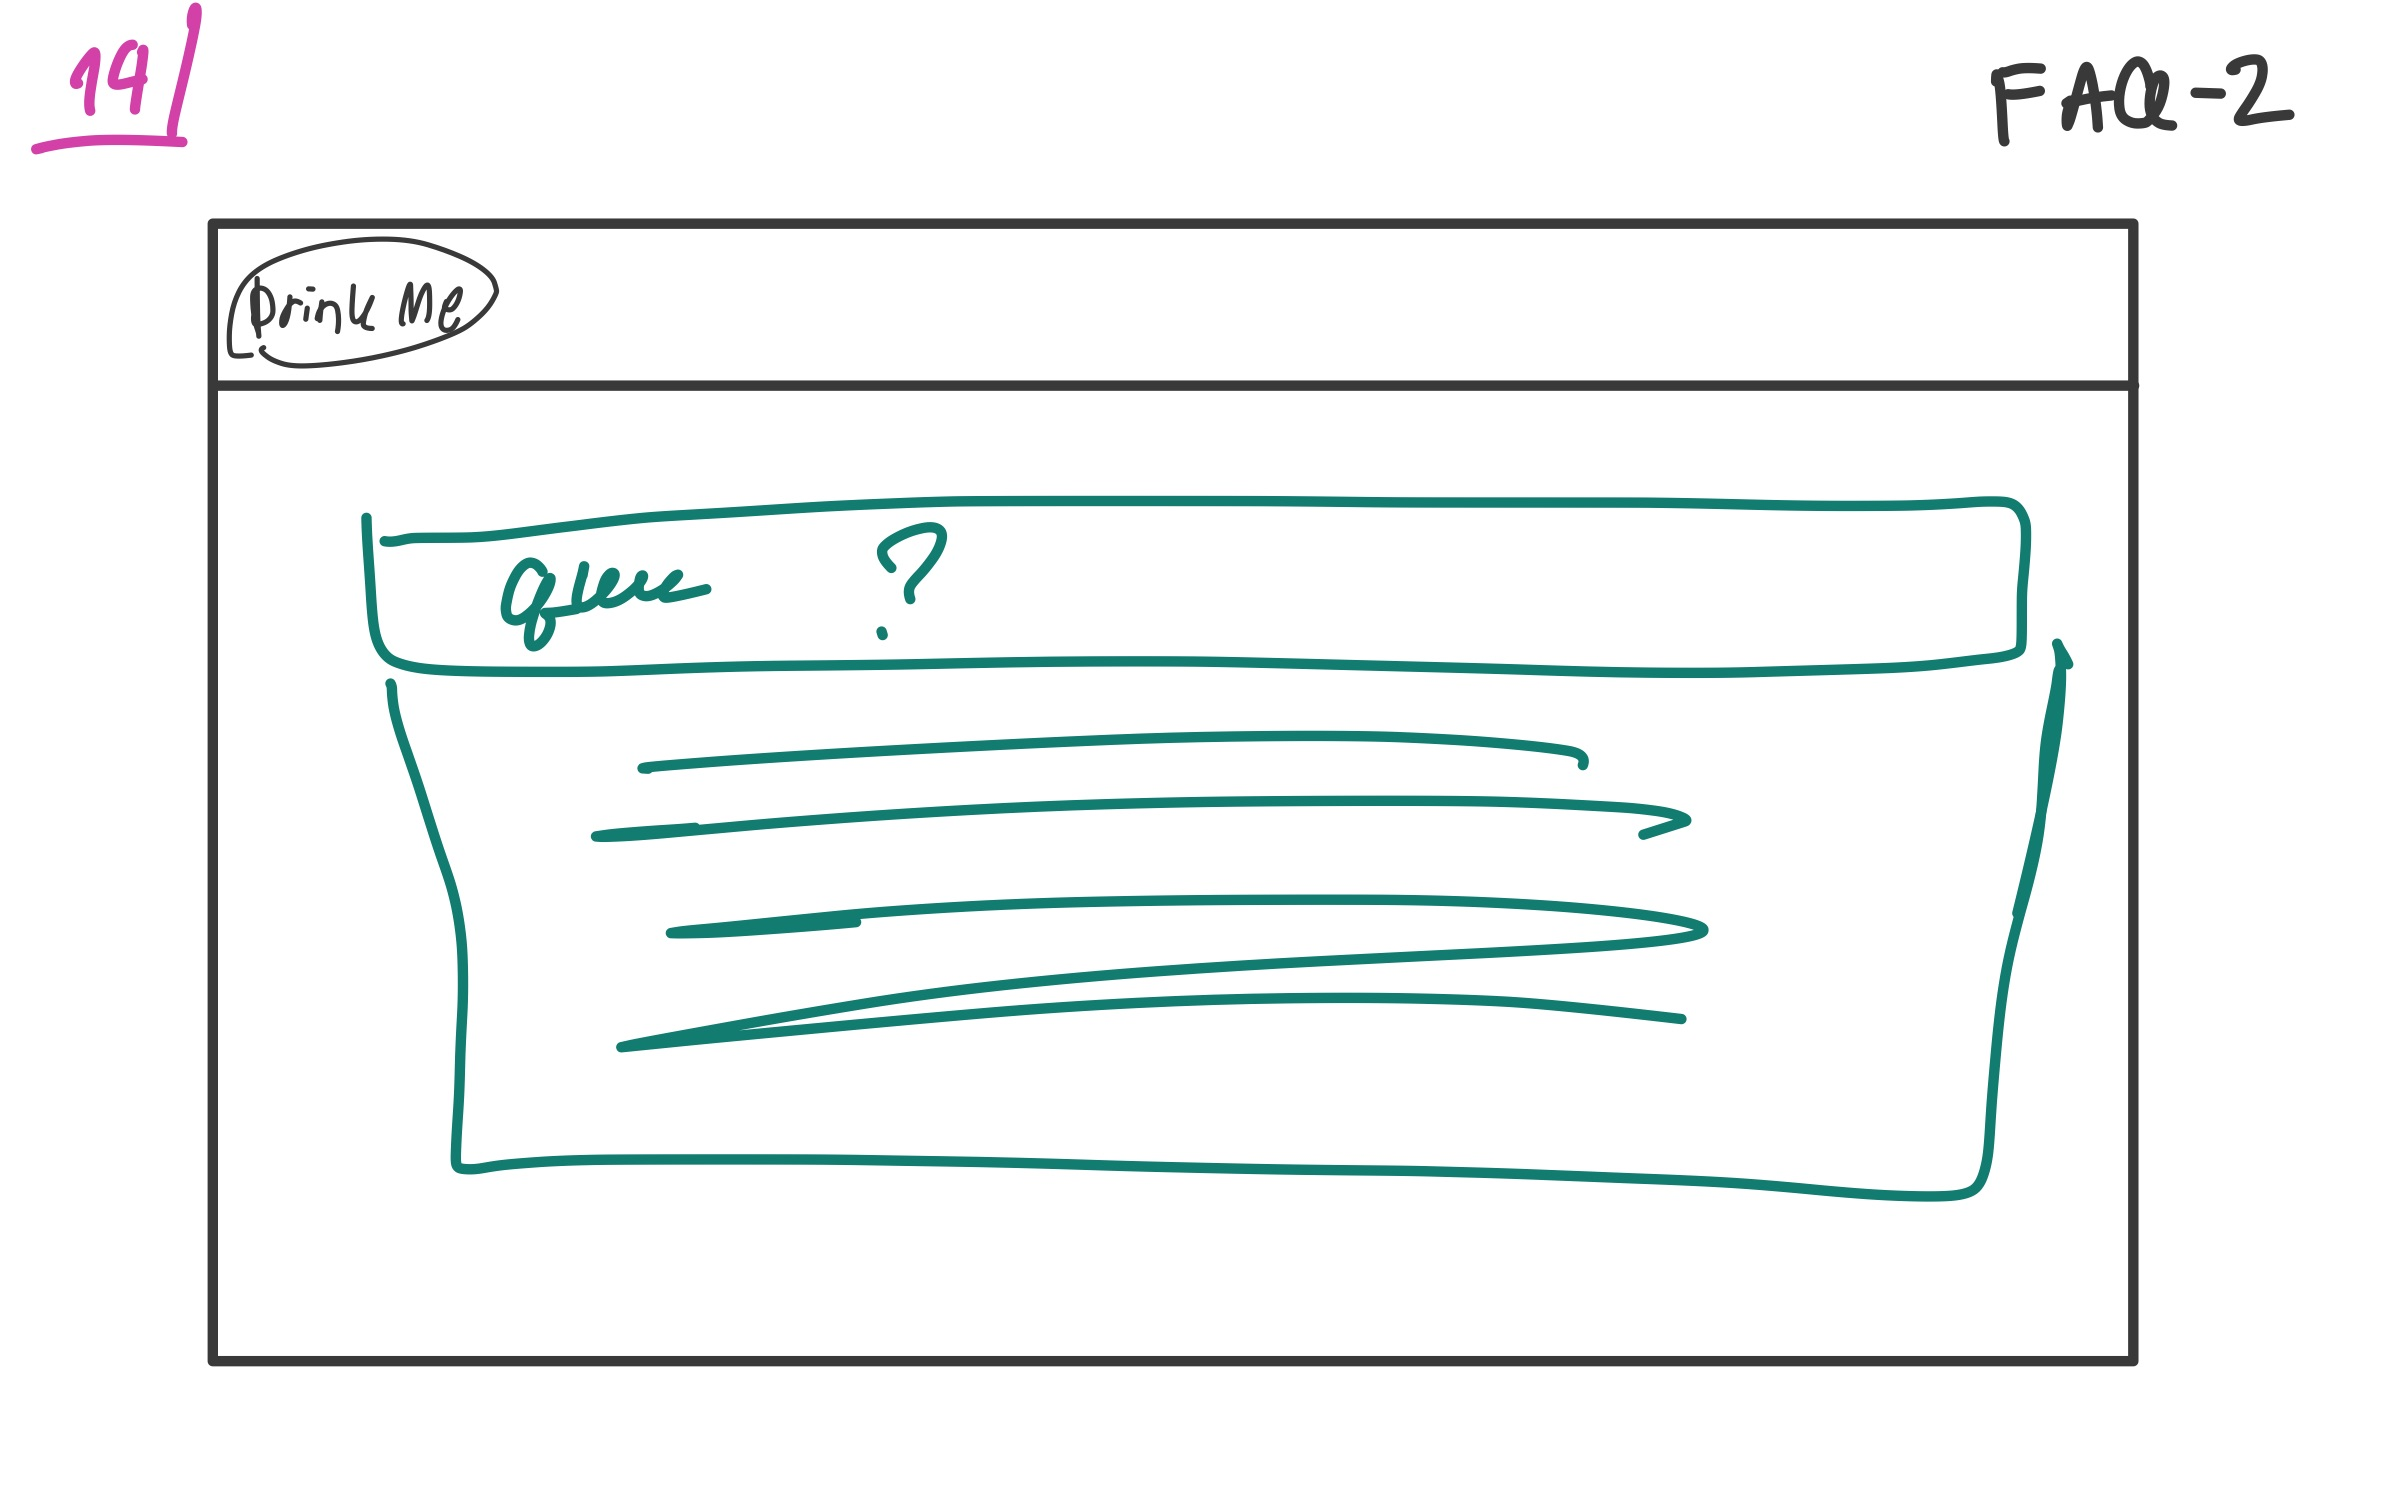 14/
FAQ-2
Drink Me
?